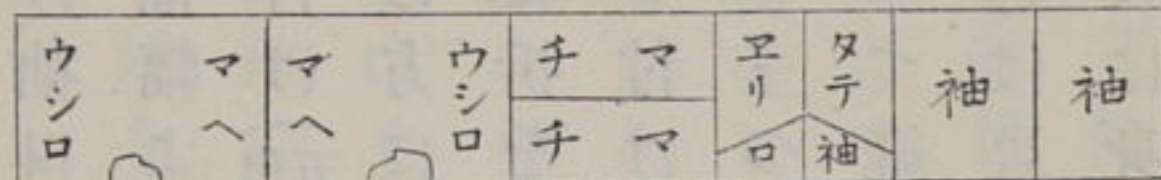 袖
袖
タテ
ヱリ
袖口
マチ
マチ
ウシロ
マヘ
マヘ
ウシロ